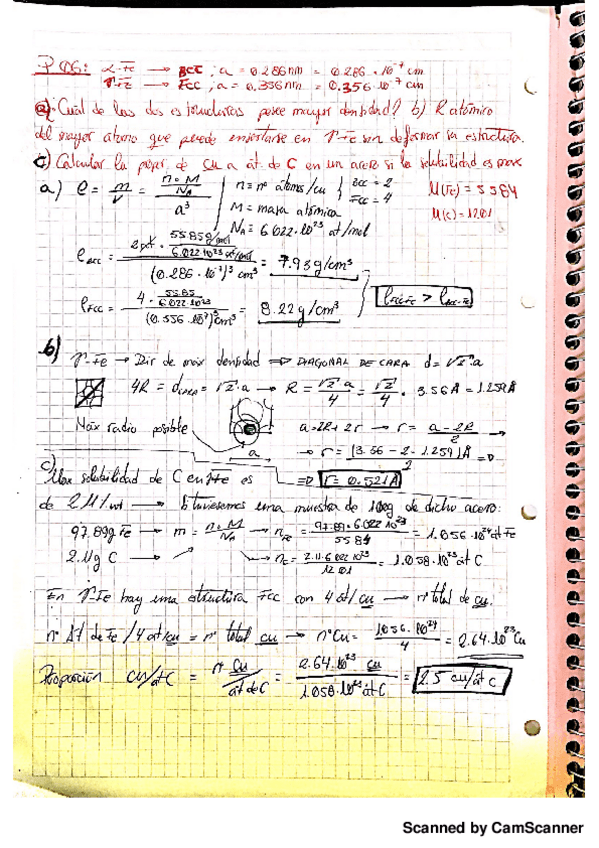 P 06: α-Fe → BCC; a = 0.286 nm = 0.286·10⁻⁷ cm
γ-Fe → FCC; a = 0.356 nm = 0.356·10⁻⁷ cm
a) Cuál de las dos estructuras posee mayor densidad? b) R atómico
del mayor átomo que puede insertarse en γ-Fe sin deformar su estructura.
c) Calcular la propor. de cu a át. de C en un acero si la solubilidad es max
a) ρ = m/V = (n·M/N_A)/a³
n = nº átomos/cu { BCC = 2 FCC = 4
M = masa atómica
N_A = 6.022·10²³ at/mol
M(Fe) = 55.84
M(C) = 12.01
ρ_BCC = / (0.286·10⁻⁷)³ cm³ = 7.93 g/cm³
ρ_FCC = (4 · 55.85/6.022·10²³)/(0.356·10⁻⁷)³ cm³ = 8.22 g/cm³
ρFCC-Fe > ρBCC-Fe
b) γ-Fe → Dir de máx densidad ⇒ DIAGONAL DE CARA d = √2·a
4R = d_CARA = √2·a → R = √2·a/4 = √2/4 · 3.56 Å = 1.259 Å
Máx radio posible
a = 2R + 2r → r = (a - 2R)/2 →
a
→ r = (3.56 - 2·1.259) Å/2 ⇒
⇒ r = 0.521 Å
c) Max solubilidad de C en γFe es
de 2.11% wt → Si tuviesemos una muestra de 100g de dicho acero:
97.89g Fe → m = n·M/N_A → n_Fe = 97.89·6.022·10²³/55.84 = 1.056·10²⁴ át Fe
2.11g C → n_C = 2.11·6.022·10²³/12.01 = 1.058·10²³ át C
En γ-Fe hay una estructura FCC con 4 at/cu → nº total de cu.
nº At de Fe/4 at/cu = nº total cu → nºCu = 1.056·10²⁴/4 = 2.64·10²³ Cu
Proporción cu/át C = nº Cu/át de C = 2.64·10²³ cu/1.058·10²³ át C = 2.5 cu/át C
Scanned by CamScanner